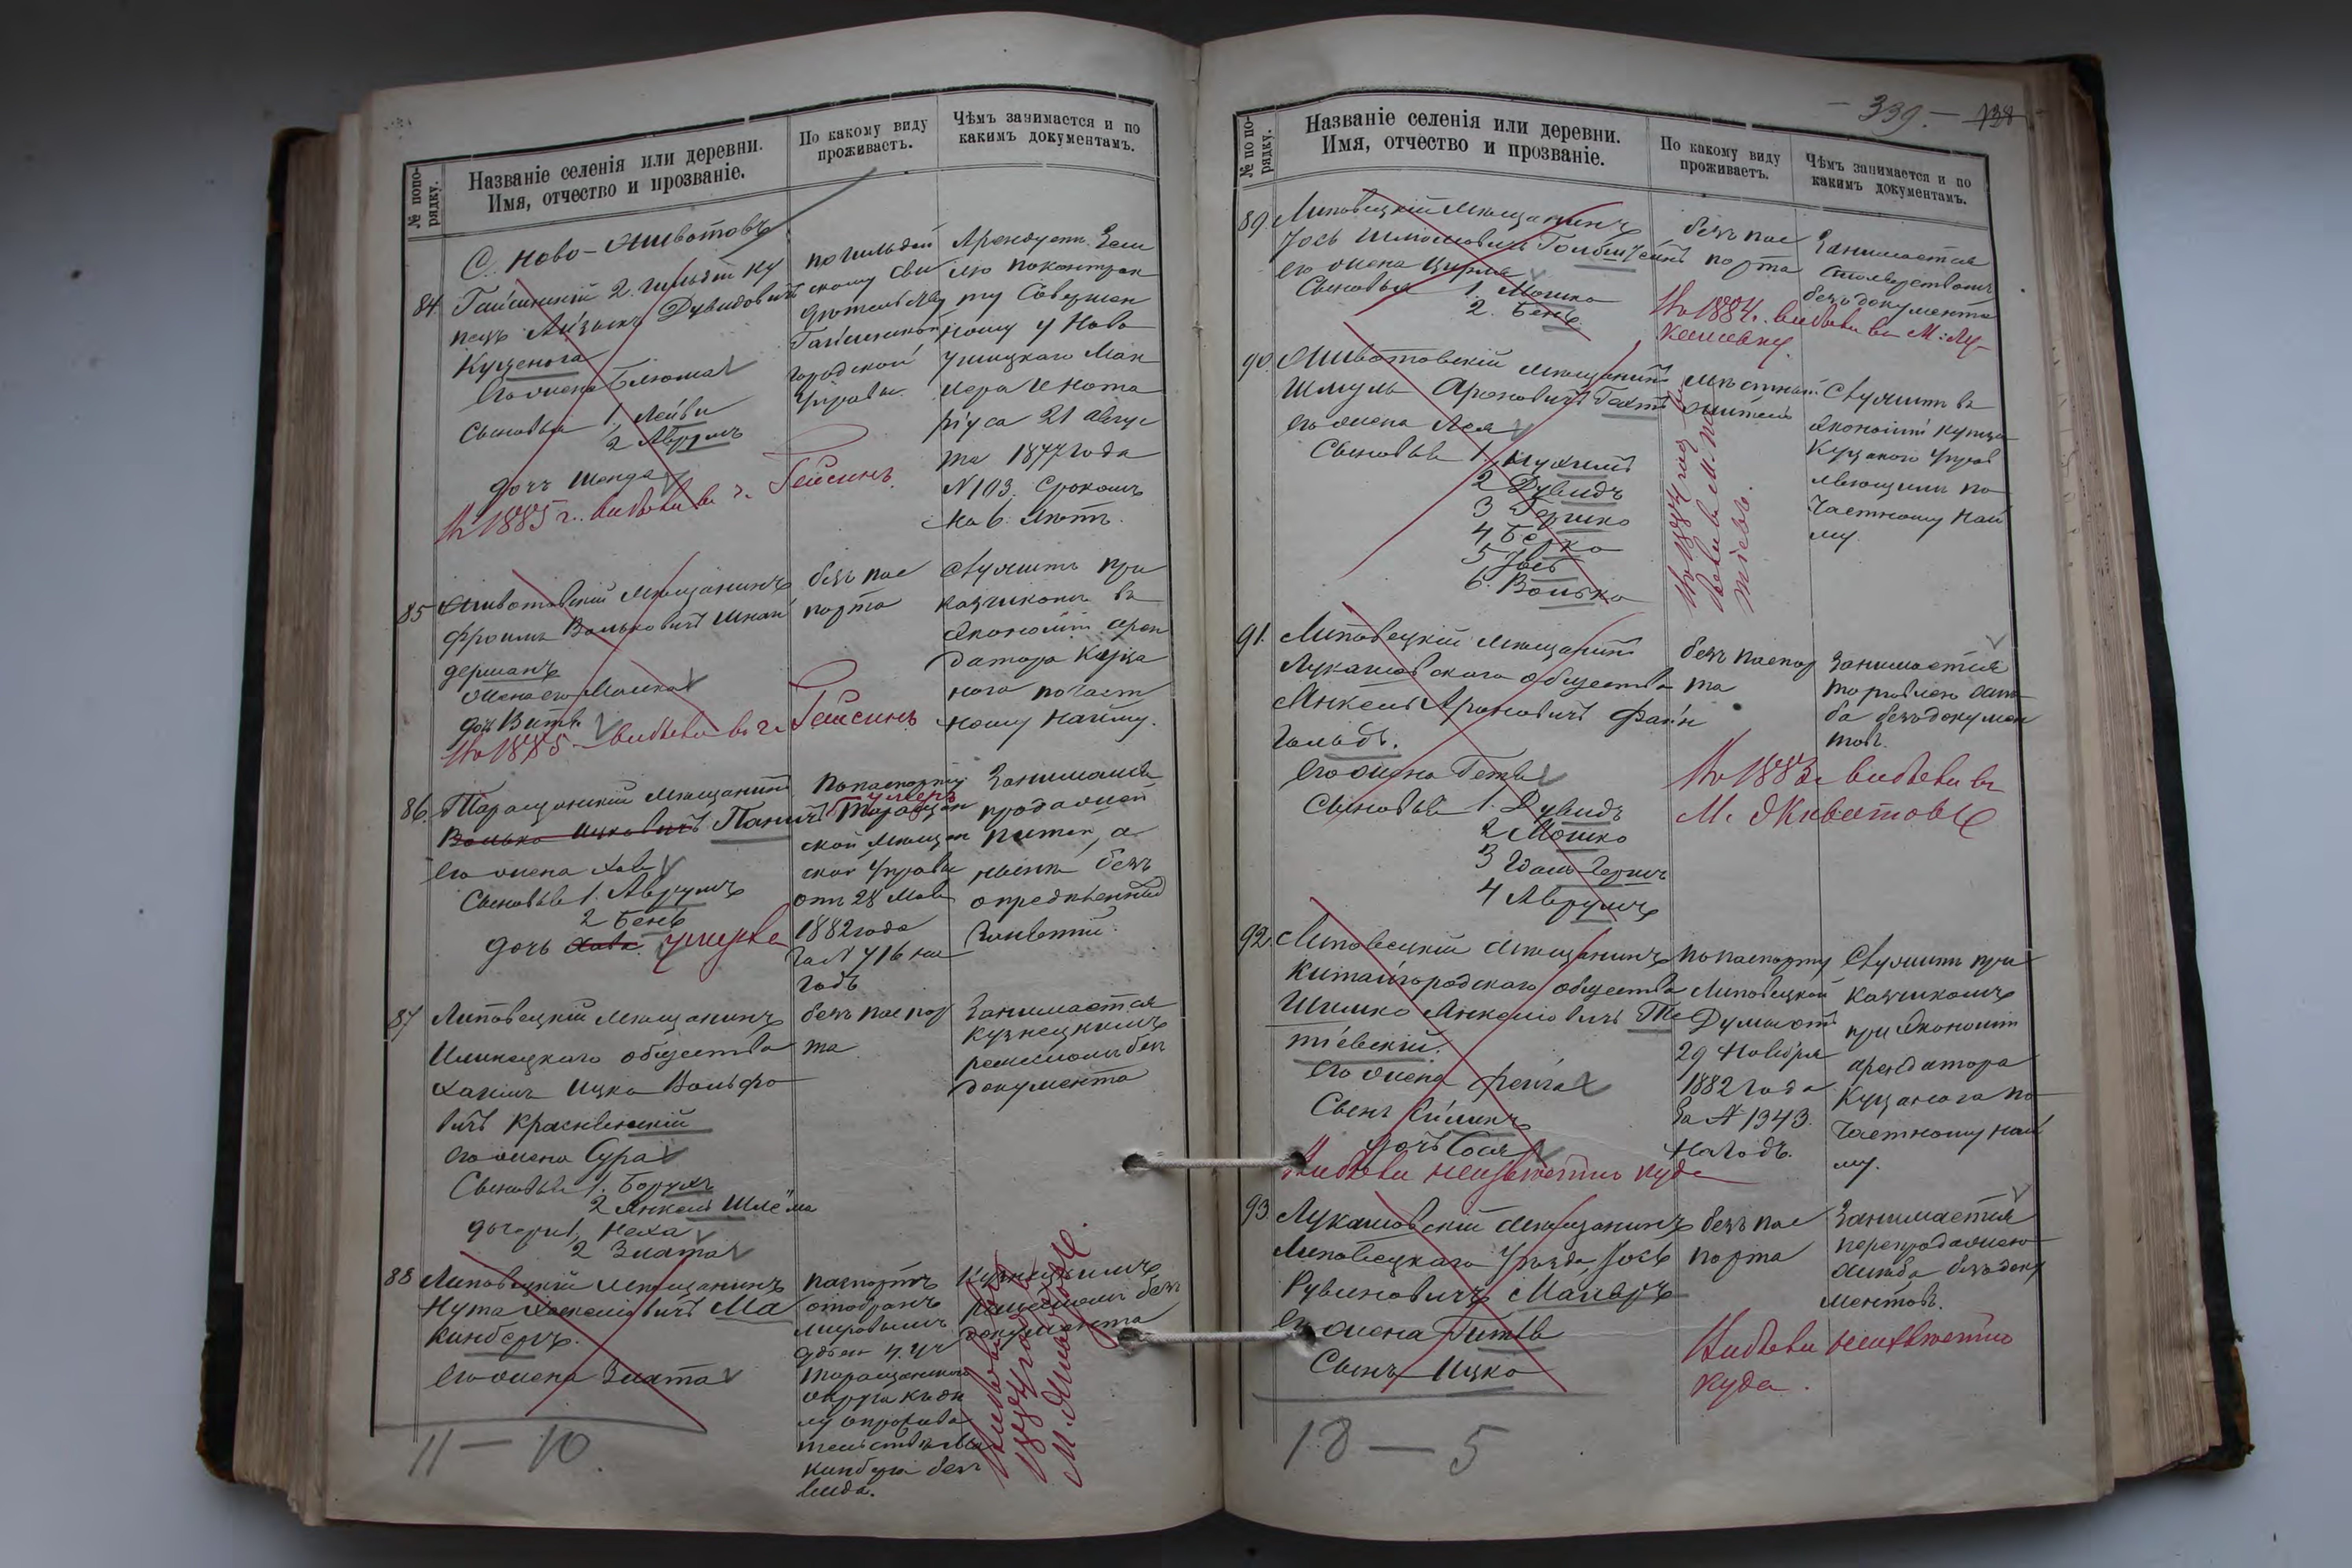 № попо-
рядку.
Названіе селенія или деревни.
Имя, отчество и прозваніе.
По какому виду
проживаетъ.
Чѣмъ занимается и по
какимъ документамъ.
С. Ново-Животовъ
84
Гайсинскій 2. гильдіи ку
пецъ Айзыкъ Дувидовичъ
Куценога
Его жена Блюма
Сыновья 1. Лейви
2 Аврумъ
дочь Шейда
въ 1885 г. выбыли въ г. Гайсинъ
по гильдей
скому сви
дѣтельству
Гайсинской
городской
Управы.
Арендуетъ Зем
лю по контрак
ту Совершен
ному у Ново
ушицкаго
нотa
ріуса 21 Авгус
та 1877 года
N 103. Срокомъ
на 6. лѣтъ.
85
Животовскій мѣщанинъ
Фроимъ Вольковичъ Шнай
дерманъ
жена его Малка
дочь
въ 1885 выбыли въ г. Гайсинъ
безъ пас
порта
Служитъ при
казчикомъ въ
Экономіи арен
датора
по част
ному найму.
86.
Таращанскій мѣщанинъ
Волько Ицковичъ Паничъ
умеръ
его жена Хая
Сыновья 1. Аврумъ
2 Бень
дочь Хава. умерла
По паспорту
Таращан
ской мѣщан
ской Управы
отъ 28 Мая
1882 года
за N 716 на
годъ
Занимался
продажей
питей, а
нынѣ безъ
опредѣленныхъ
занятій.
87
Липовецкій мѣщанинъ
Илинецкаго общества
Хаимъ Ицко Вольфо
вичъ Красненскій
его жена Сура
Сыновья 1. Борухъ
2 Янкель Шлёма
дочери 1. Неха
2 Злата
безъ паспор
та
Занимается
Кузнецкимъ
ремесломъ безъ
документа
88
Липовецкій мѣщанинъ
Нута Хаскелевичъ Ма
кинберъ.
Его жена Злата
паспортъ
отобранъ
мировымъ
судьею 4. уч
Таращанскаго
округа къ дѣ
лу о
тельствѣ Ма
кинбера безъ
вида.
Кузнецкимъ
ремесломъ безъ
документа
Выбыли въ
188 году въ
М. Животовъ
11 — 10.
— 339. — 138
№ по по-
рядку.
Названіе селенія или деревни.
Имя, отчество и прозваніе.
По какому виду
проживаетъ.
Чѣмъ занимается и по
какимъ документамъ.
89.
Липовецкій мѣщанинъ
Іось Шлиомовичъ
его жена Цирля
Сыновья 1. Мошко
2. Бень
безъ пас
порта
Занимается
столярствомъ
безъ документа
Въ 1884 г. выбыли въ М: Лу-
кашевку.
90.
Животовскій мѣщанинъ
Шмуль Ароновичъ Гехтъ
его жена Лея
Сыновья 1. Нухимъ
2 Дувидъ
3 Гершко
4 Берко
5 Іось
6. Волько
мѣстный
житель
въ 1884 году вы
были въ М. Пя
тіевъ.
Служитъ въ
Экономіи купца
Куцаного управ
ляющимъ по
Частному най
му.
91.
Липовецкій мѣщанинъ
Лукашовскаго общества
Янкель Ароновичъ Файн
гольдъ.
его жена Гетя
Сыновья 1. Дувидъ
2 Мошко
3 Іось Гершъ
4 Аврумъ
безъ паспор
та
Занимается
торговлею хлѣ
ба безъ докумен
товъ.
въ 1883 г. выбыли въ
М. Животовъ
92.
Липовецкій мѣщанинъ
Китайгородскаго общества
Шмилко Янкелевичъ Пя
тіевскій.
его жена Фейга
Сынъ
дочь Сося
Выбыли неизвѣстно куда
по паспорту
Липовецкой
Думы отъ
29 Ноября
1882 года
за N 1343.
На годъ.
Служитъ при
казчикомъ
при Экономіи
арендатора
Куцанога по
Частному най
му.
93
Лукашовскій мѣщанинъ
Липовецкаго Уѣзда, Іось
Рувиновичъ Маляръ
Его жена Гитля
Сынъ Ицко
безъ пас
порта
Занимается
перепродажею
хлѣба безъ доку
ментовъ.
Выбыли неизвѣстно
куда.
18 — 5